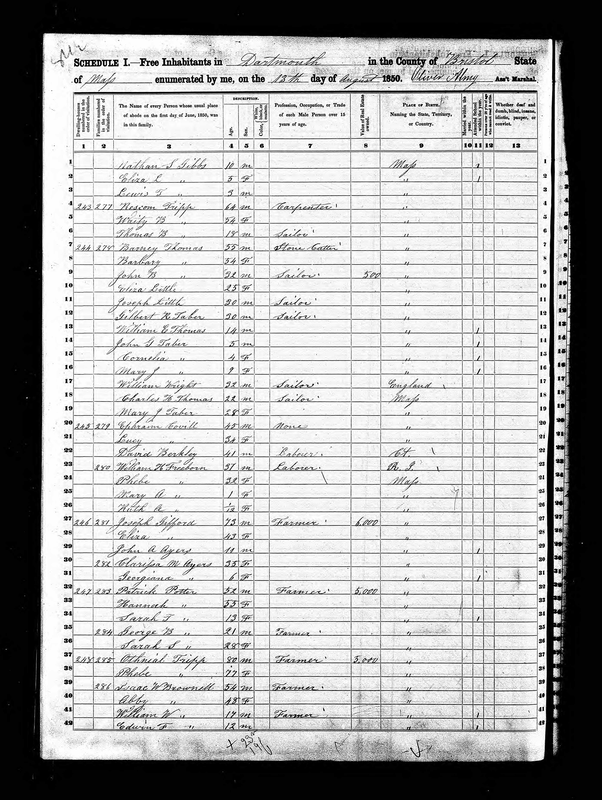 SCHEDULE I.—Free Inhabitants in Dartmouth in the County of Bristol State
of Mass enumerated by me, on the 13th day of August 1850. Oliver Almy Ass't Marshal.
Dwelling-houses numbered in the order of visitation. Families numbered in the order of visitation. The Name of every Person whose usual place of abode on the first day of June, 1850, was in this family. DESCRIPTION. Age. Sex. Profession, Occupation, or Trade of each Male Person over 15 years of age. Value of Real Estate owned. PLACE OF BIRTH. Naming the State, Territory, or Country. Married within the year. Whether deaf and dumb, blind, insane, idiotic, pauper, or convict.
1 2 3 4 5 6 7 8 9 10 11 12 13
1 Nathan S Gibbs 10 m Mass 1 1
2 Eliza L " 5 F " 1 2
3 Lewis T " 3 m " 3
4 243 277 Roscom Tripp 64 m Carpenter " 4
5 Waity B " 54 F " 5
6 Thomas B " 18 m Sailor " 6
7 244 278 Barney Thomas 55 m Stone Cutter " 7
8 Barbary " 54 F " 8
9 John B " 32 m Sailor 500 " 9
10 Eliza Little 25 F " 10
11 Joseph Little 30 m Sailor " 11
12 Gilbert R Taber 30 m Sailor " 12
13 William E Thomas 14 m " 1 13
14 John G Taber 5 m " 1 14
15 Cornelia " 4 F " 1 15
16 Mary J " 9 F " 1 16
17 William Wright 32 m Sailor England 17
18 Charles H Thomas 22 m Sailor Mass 18
19 Mary J Taber 28 F " 19
20 245 279 Ephraim Covill 45 m None " 20
21 Lucy " 34 F " 21
22 David Berkley 41 m Labourer Ct 22
23 280 William H Freeborn 37 m Labourer R. I. 23
24 Phebe " 32 F Mass 24
25 Mary A " 1 F " 25
26 Ruth A " F " 26
27 246 281 Joseph Gifford 73 m Farmer 6,000 " 27
28 Eliza " 43 F " 28
29 John A Ayers 11 m " 1 29
30 282 Clarissa M Ayers 35 F " 30
31 Georgiana " 6 F " 1 31
32 247 283 Patrick Potter 52 m Farmer 5,000 " 32
33 Hannah " 53 F " 33
34 Sarah T " 13 F " 1 34
35 284 George B " 21 m Farmer " 35
36 Sarah S " 28 F " 36
37 248 285 Othnial Tripp 80 m Farmer 5,000 " 37
38 Phebe " 77 F " 38
39 286 Isaac W Brownell 54 m Farmer " 39
40 Abby " 48 F " 40
41 William W " 17 m Farmer " 1 41
42 Edwin F " 12 m " 1 42